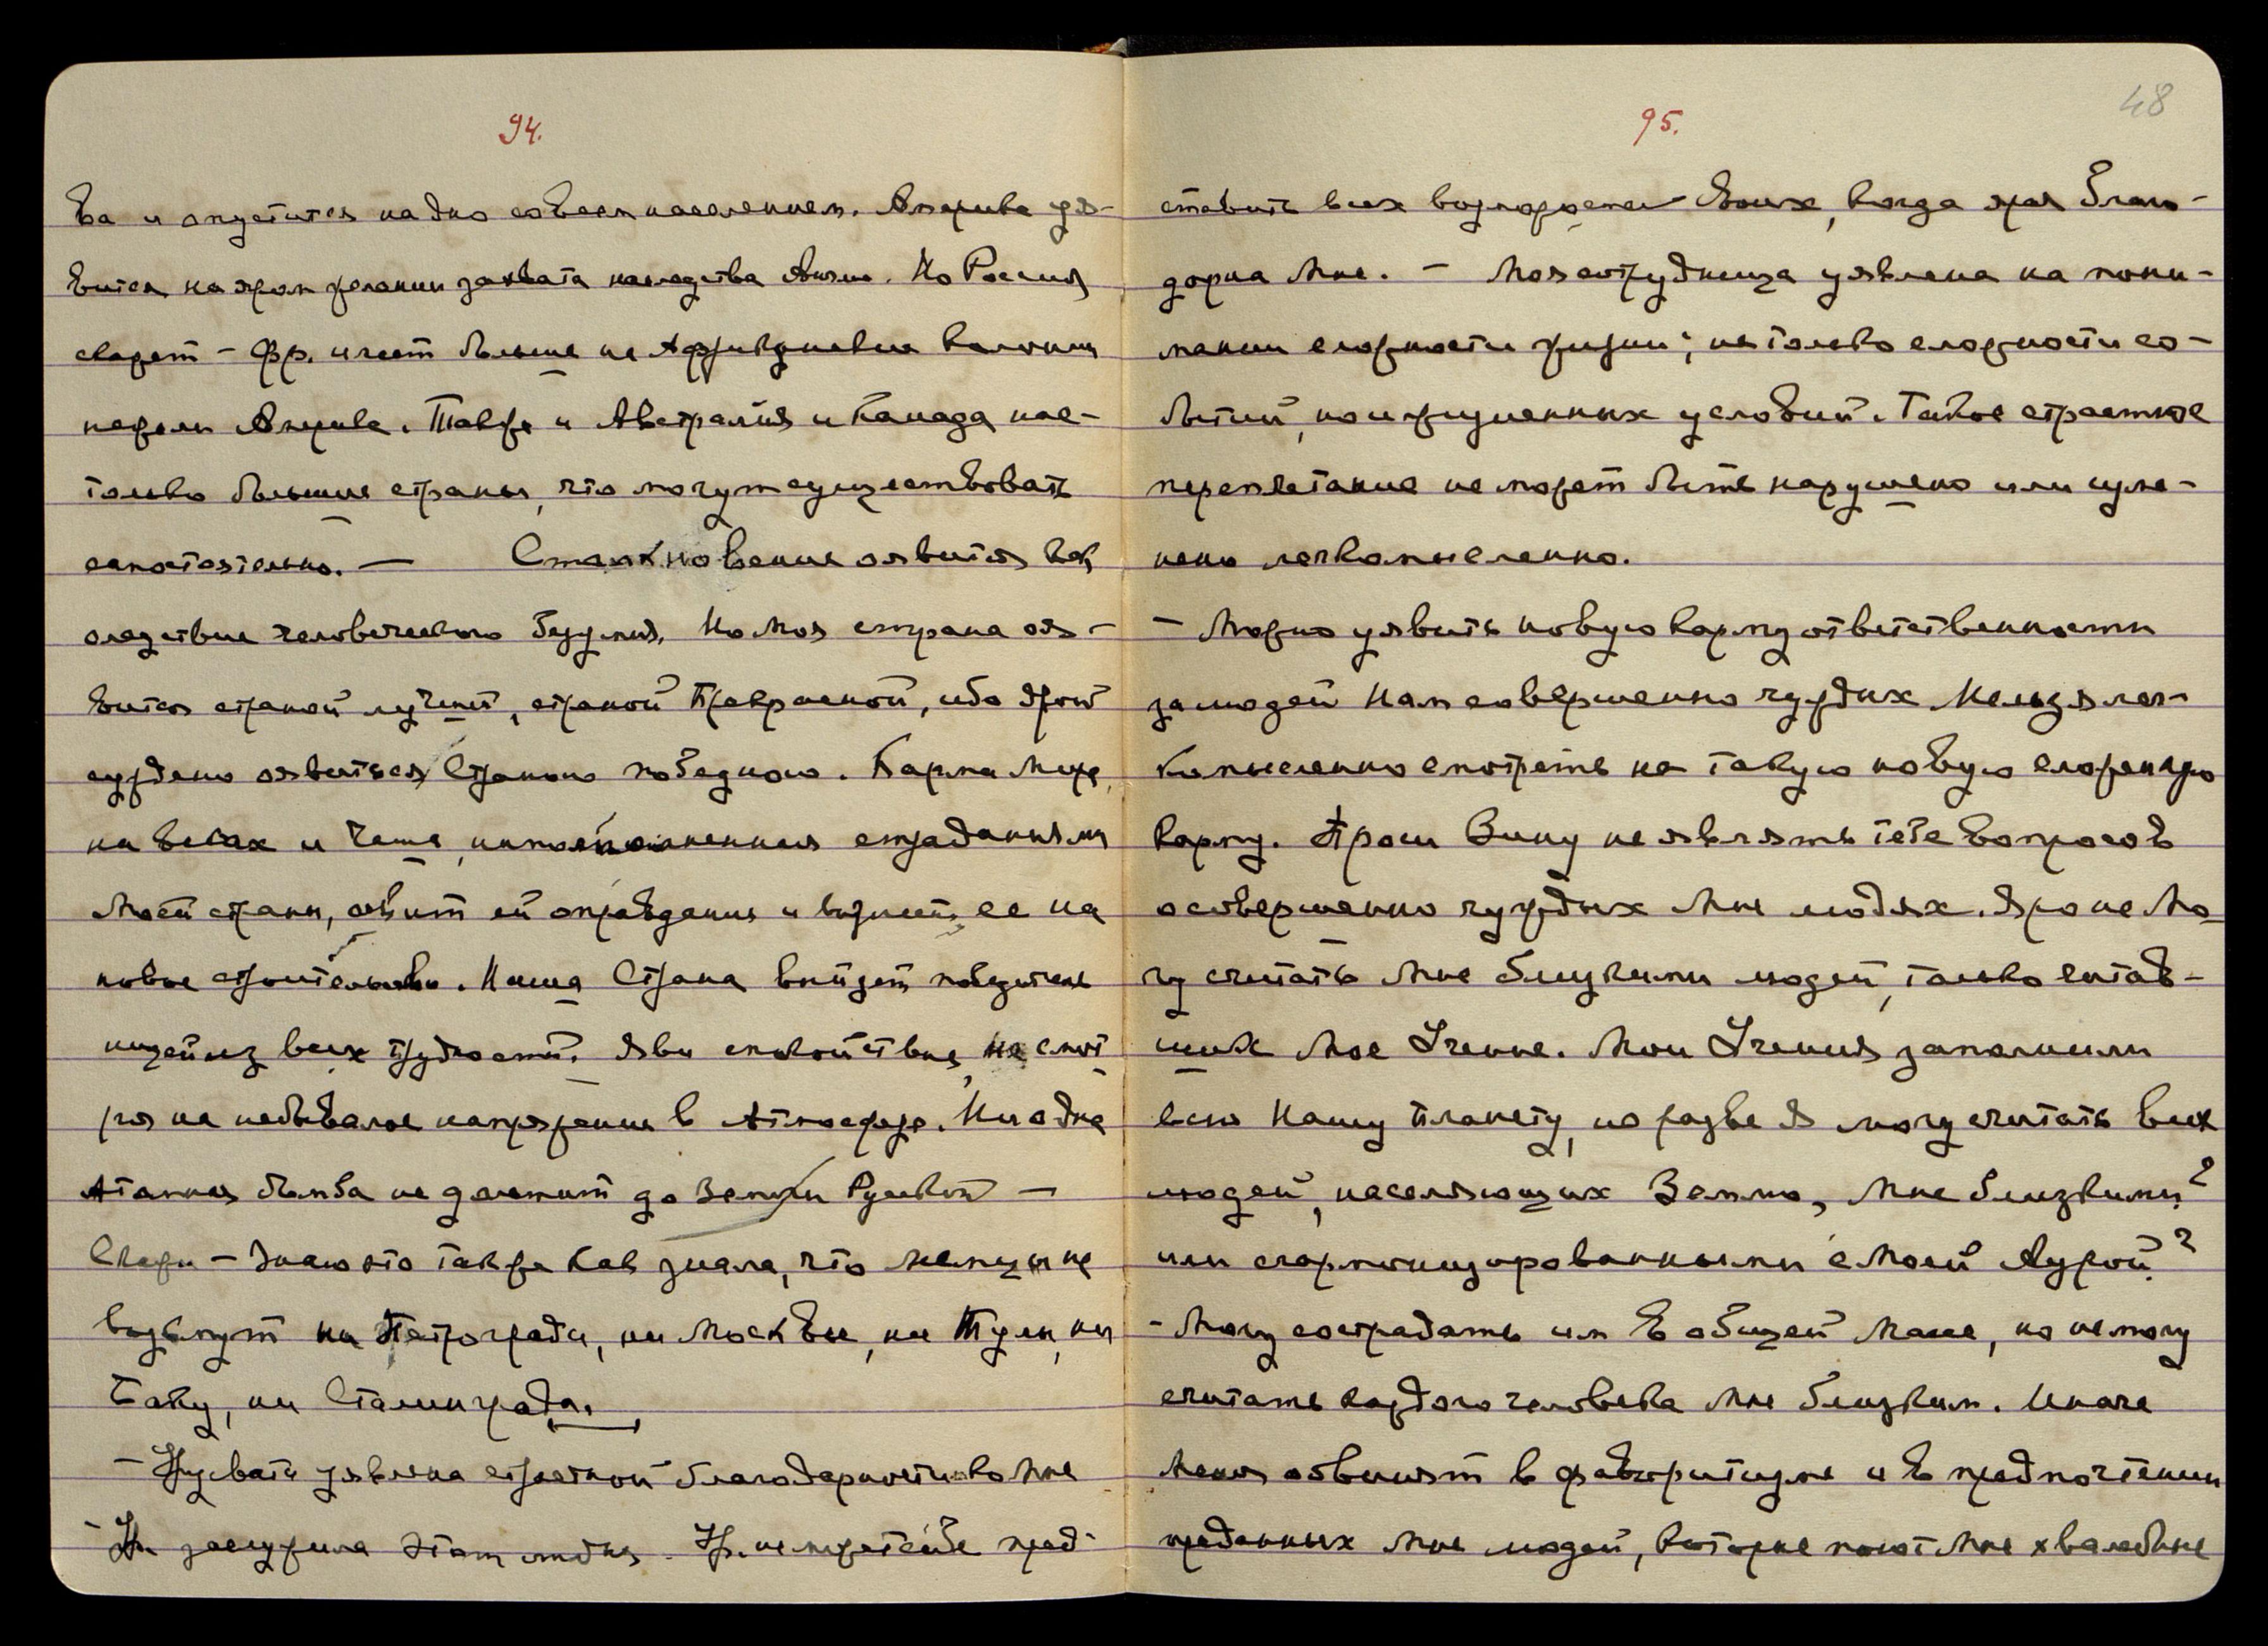 94.
ва и опустится на дно со всем населением. Америка уя-
вится на яром желании захвата наследства Англии. Но Россия
скажет – Фр. имеет больше на Африканские колонии
нежели Америка. Также и Австралия и Канада нас-
только большие страны, что могут существовать
самостоятельно. — Столкновение оявится как
следствие человеческого безумия. Но Моя страна оя-
вится страной лучшей, страной Прекрасной, ибо Ярой
суждено оявиться Страною победною. Карма Мира
на весах и Чаша, наполненная страданиями
Моей страны, явит ей оправдание и вознесет ее на
новое строительство. Наша Страна выйдет победитель-
ницей из всех трудностей. Яви спокойствие, несмот
ря на небывалое напряжение в Атмосфере. Ни одна
Атомная бомба не долетит до Земли Русской —
Скажи – Знаю это также как знала, что немцы не
возьмут ни Петрограда, ни Москвы, ни Тулы, ни
Баку, ни Сталинграда.
– уявлена страстной благодарностью ко Мне
– заслужила этот . не может себе пред-
95.
48
ставить всех возможностей Своих, когда ярая благо-
дарна Мне. – Моя сотрудница уявлена на пони-
мании сложности жизни; не только сложности со-
бытий, но и жизненных условий. Такое страстное
переплетание не может быть нарушено или изме-
нено легкомысленно.
– Можно уявить новую карму ответственности
за людей Нам совершенно чуждых. Нельзя лег-
комысленно смотреть на такую новую сложную
карму. Проси Зину не являть тебе вопросов
о совершенно чуждых Мне людях. Яро не Мо
гу считать Мне близкими людей, только читав-
ших Мое Учение. Мои Учения заполнили
всю Нашу планету, но разве Я могу считать всех
людей, населяющих Землю, Мне близкими?
или сгармонизированными с Моей Аурой?
– Могу сострадать им в общей Массе, но не могу
считать каждого человека Мне близким. Иначе
Меня обвинят в фаворитизме и в предпочтении
преданных Мне людей, которые поют Мне хвалебные